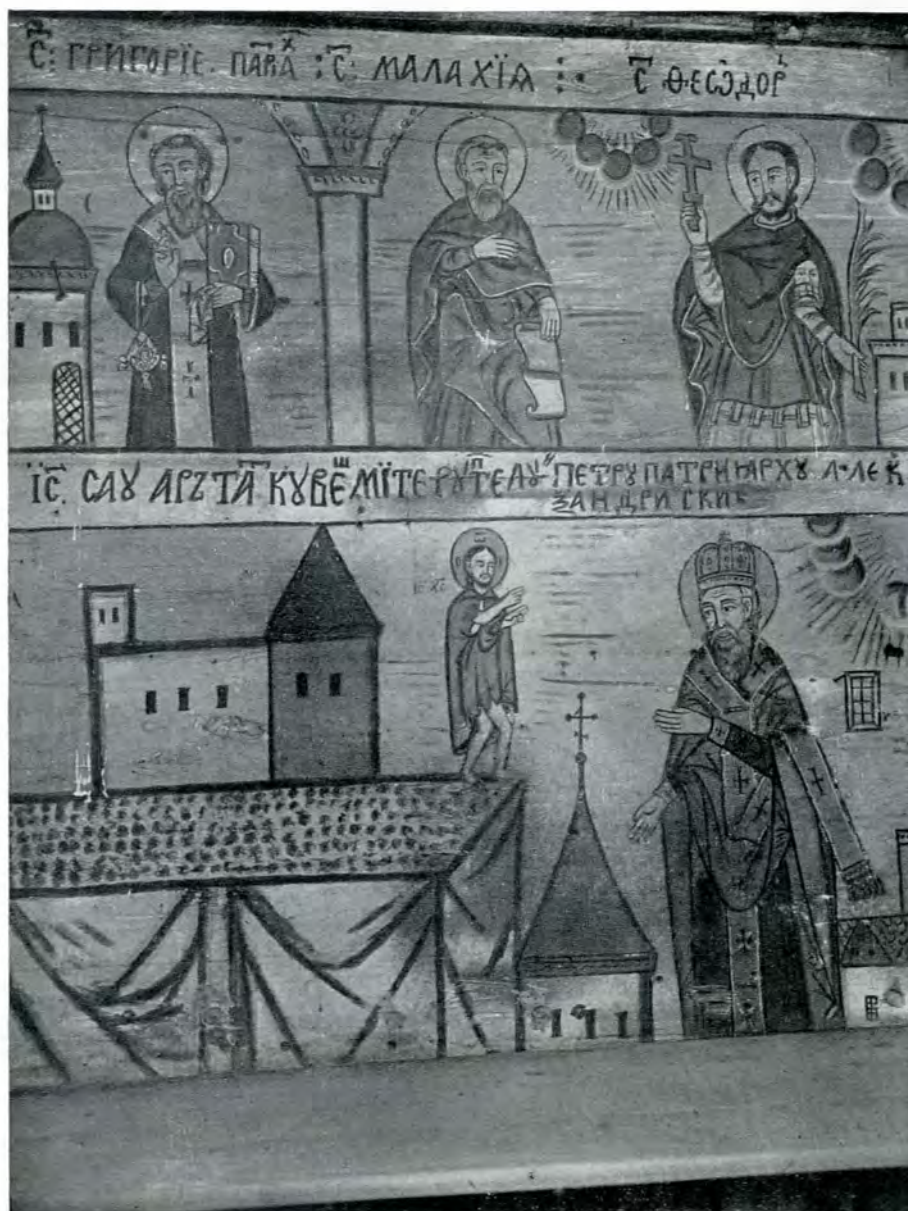 С҃: ГРИГОРІЕ. ПАВ҃Аᵡ :С҃: МАЛАХЇѦ :· С҃ ѲЕѠДОР
І҃С. САУ АРЪТА҃ КУ ВЕⷲМЇТЕ РУᲆТЕ ЛУЙ ПЕТРУ ПАТРИѦРХУ. АЛЕК
ЗАНДРИСКИЕ
ІС ХС